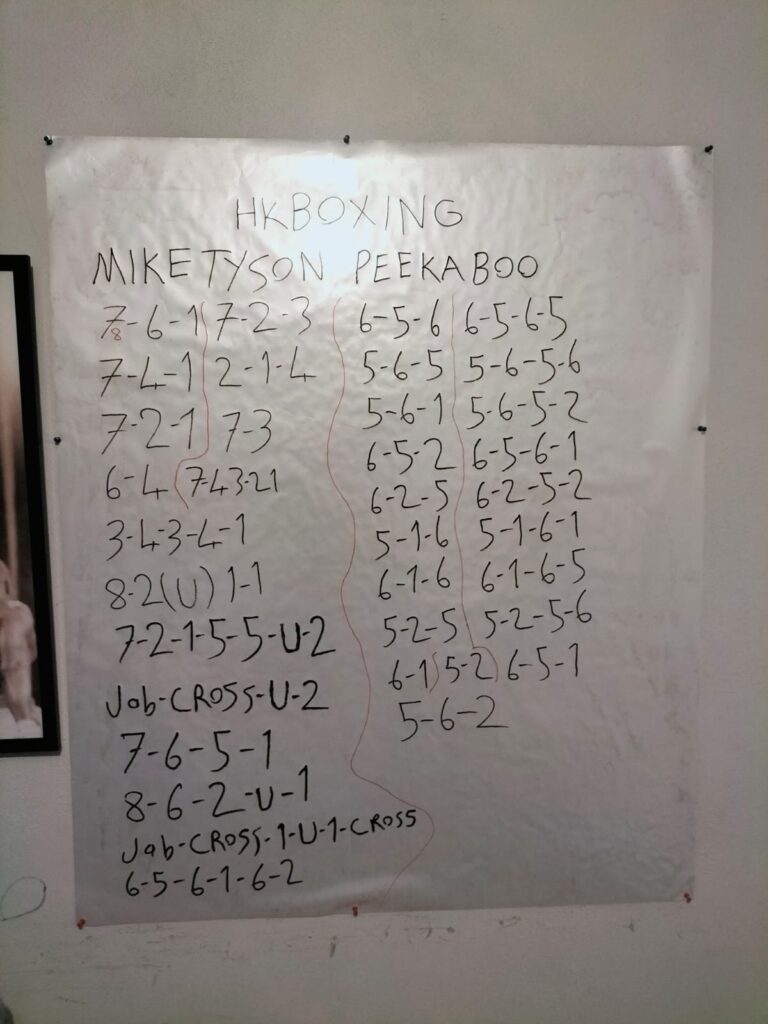 HKBOXING
MIKE TYSON PEEKABOO
7-6-1
8
7-4-1
7-2-1
6-4
7-2-3
2-1-4
7-3
7-43-21
3-4-3-4-1
8-2(U) 1-1
7-2-1-5-5-U-2
Job-CROSS-U-2
7-6-5-1
8-6-2-U-1
Jab-CROSS-1-U-1-CROSS
6-5-6-1-6-2
6-5-6
5-6-5
5-6-1
6-5-2
6-2-5
5-1-6
6-1-6
5-2-5
6-5-6-5
5-6-5-6
5-6-5-2
6-5-6-1
6-2-5-2
5-1-6-1
6-1-6-5
5-2-5-6
6-1 5-2 6-5-1
5-6-2